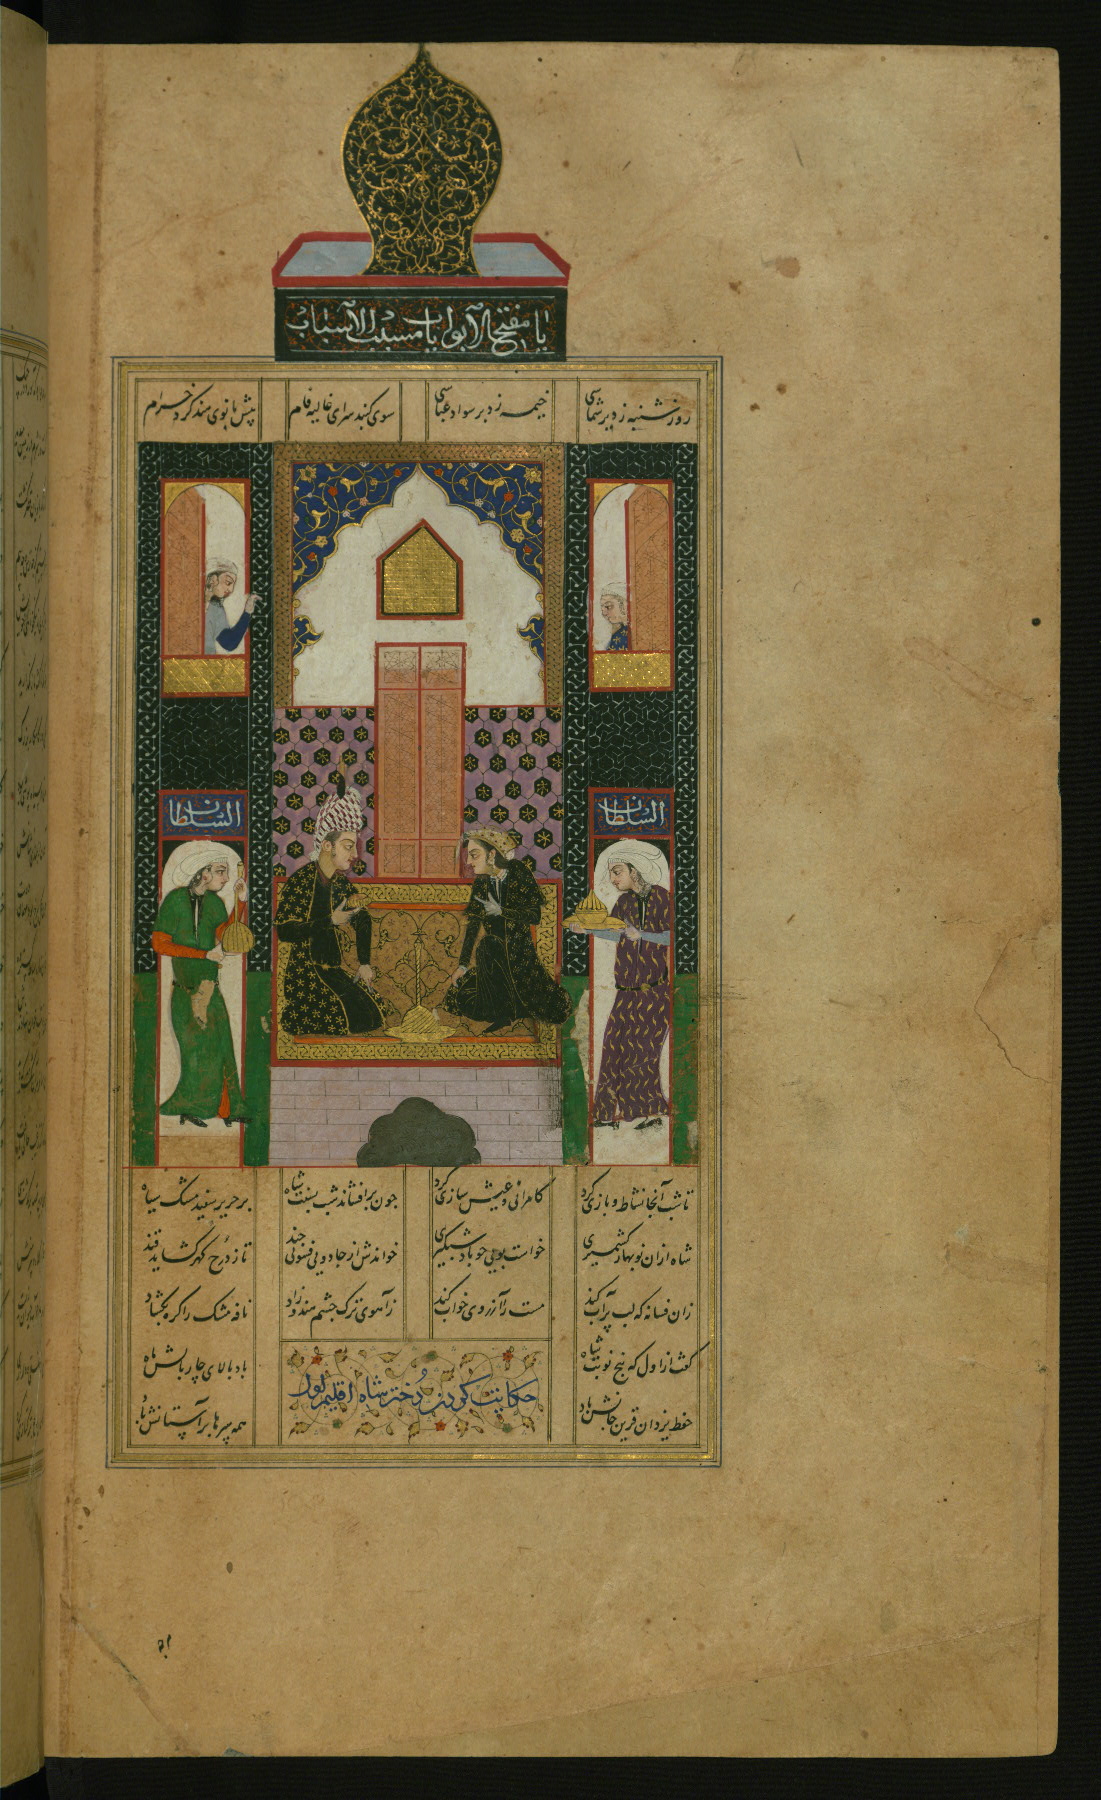 یا مفتح الابواب یا مسبب الاسباب
روز شنبه ز دیر شماسی خیمه زد بر سواد عباسی سوی کنبد سرای غالیه فام پیش بانوی هند کرد خرام
السلطان السلطان
تا شب آنجا نشاط و بازی کرد کامرانی و عیش سازی کرد جون برافشاند شب بسنت شاه بر حریر سفید مشک سیاه
شاه ازان نوبهار کشمیری خواست بویی جو باد شبکیری خواندش از جادویی فسونی جند تا ز درج کهر کشاید قند
زان فسانه که لب پر آب کند مست را آرزوی خواب کند زآهوی ترک جشم هندو زاد نافه مشک را کره بکشاد
کفت از اول که پنج نوبت شاه باد بالای چار بالش ماه
حکایت کردن دختر شاه اقلیم اول
حفظ یزدان قرین جانش باد همه سرها بر آستانش باد